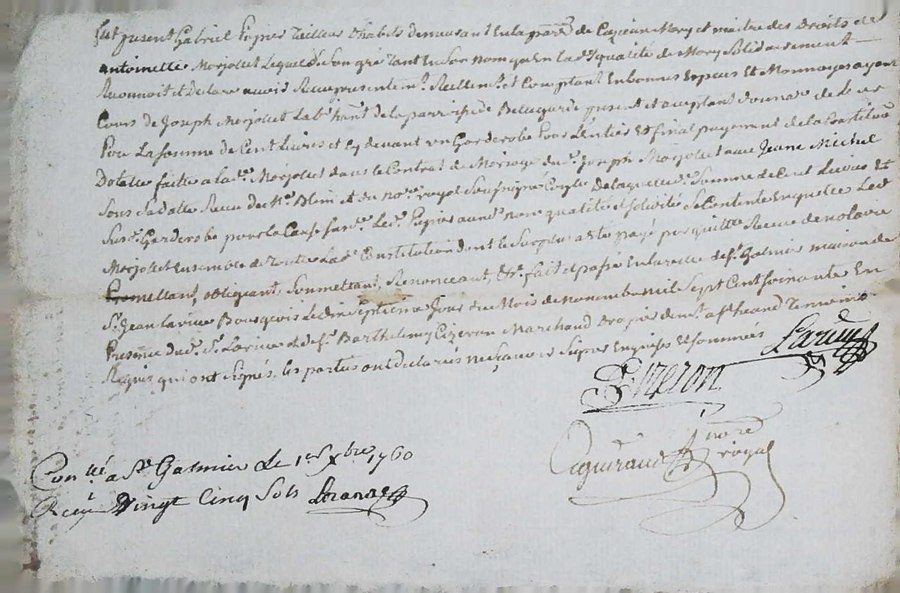 fut present Gabriel Pepier tailleur d'habits demeurant en la parr.e de mary et maitre des Droits de
antoinette Morjollet Lequel de son gré tant en son nom qu'en lad. qualité de Mary Solidairement
Reconnoit et Declare avoir Receu presentem.t Reellem.t et Comptant en bonnes Especes Et Monnoyes ayant
Cours de Joseph Morjollet Lab.r hant de la parroisse de Bellegarde present et acceptant donnar de
Pour La somme de Cent Livres et Cy devant un Garderobe Pour L'entier Et final payement de la Constitution
Dotalle faitte a lad.e Morjollet dans le Contrat de Mariage dud. Joseph Morjollet avec Jeane Michel
Sous Sa datte Receu de M.e Blein et du no.re royal Soussigné De laquelle Somme de Cent Livres Et
Sus.d Garderobe pour la Cause Sus.e Led. Pepier aund. nom qualité et solidité Se Contente En quelle Led.
Morjollet Ensemble de toutte Lad. Constitution dont le Surplus a Eté payé par quitte Receue de notaire
Promettant, obligeant, Soumettant, Renonceant, &.a fait et passé En la ville de S.t Galmier maison de
S.r Jean Larive Bourgeois Le dix septieme Jour du Mois de novembre mil Sept Cent Soixante En
Presence dud. S.r Larive et de S.r Barthelemy Eizeron Marchand Drapier dem.t aud. S.t heand Temoins
Requis qui ont Signés, les parties ont Declarés ne Scavoir Signer Enquises Et sommées
Larive
Eizeron
Aguiraud no.re
royal
Con.llé a S.t Galmier Le 1er Xbre 1760
Receu Vingt Cinq Sols